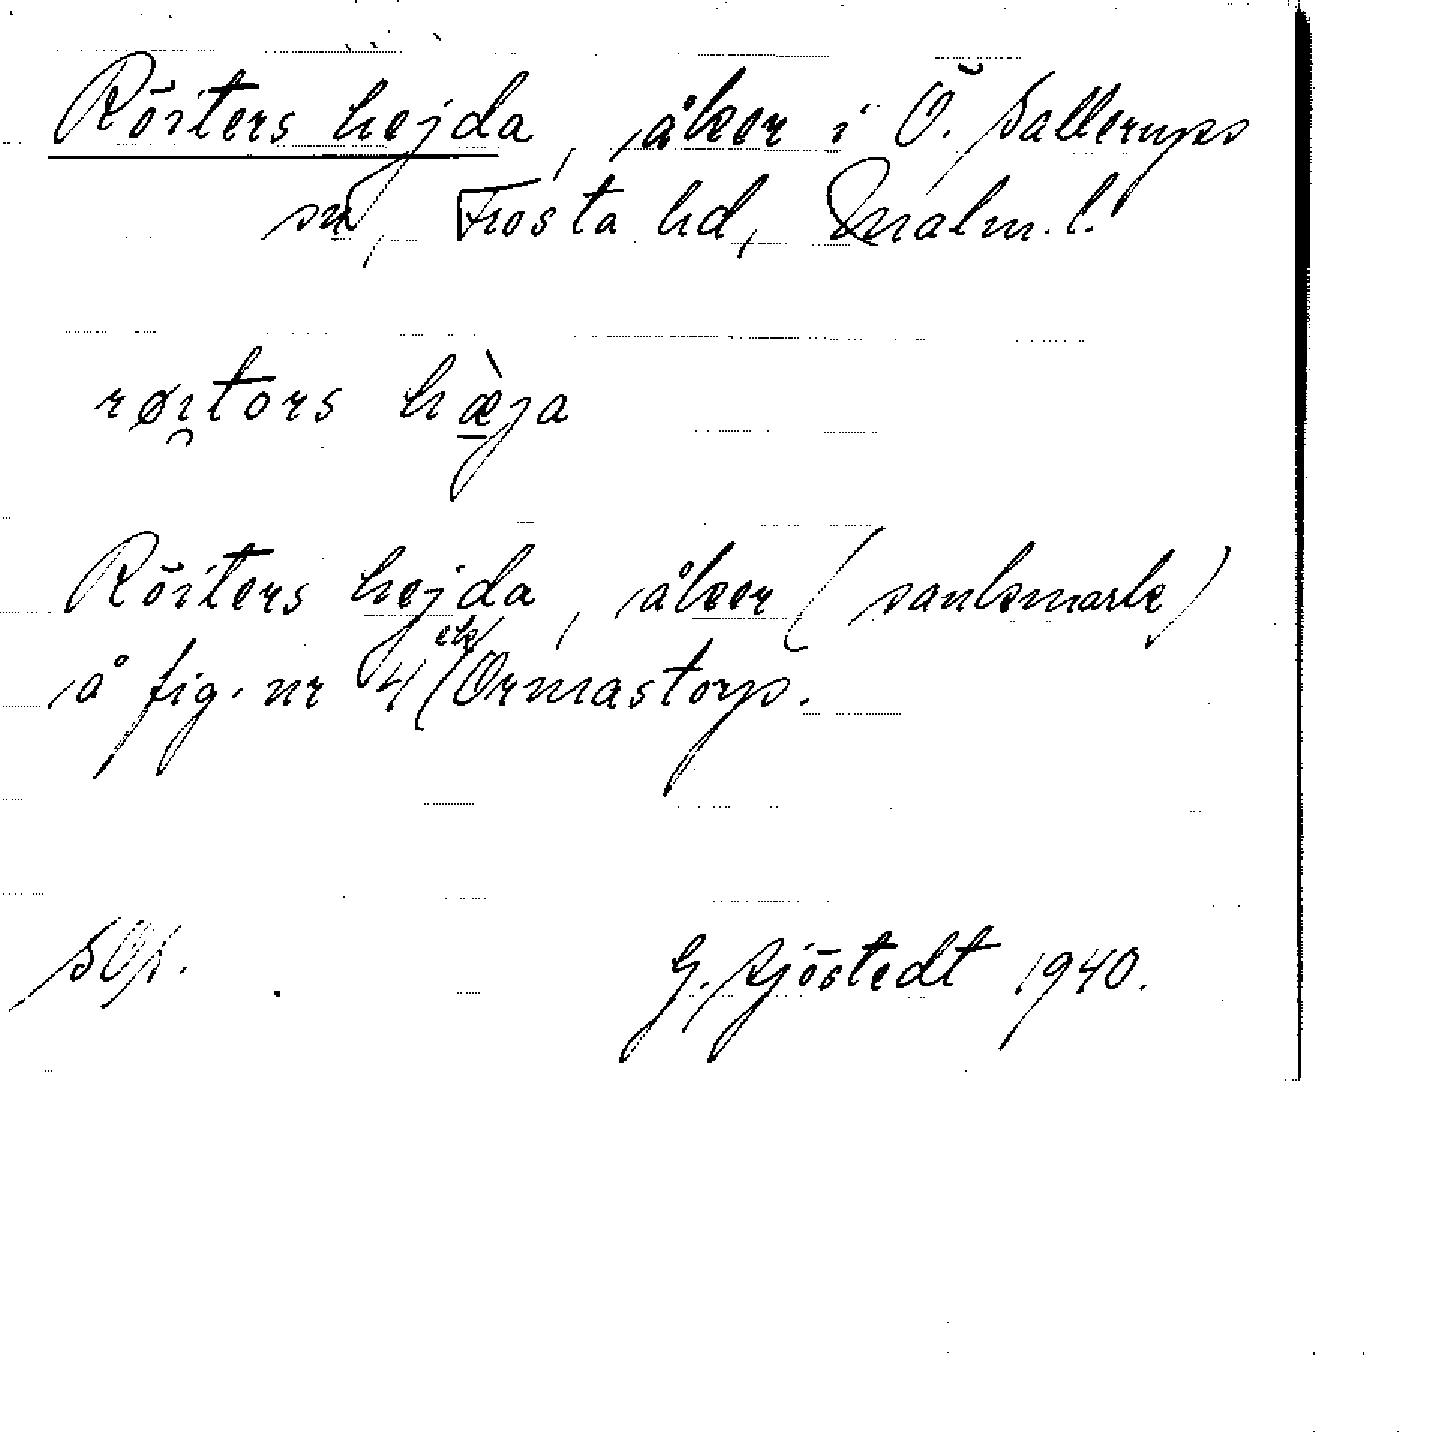 Röiters hejda, åker i Ö. Sallerups
sn, Frosta hd, Malm. l.
røi̯tors hæ̠̀ja
Röiters hejda, åker (sankmark)
å fig. nr 4 (ek) Ormastorp.
SOp.
G. Sjöstedt 1940.